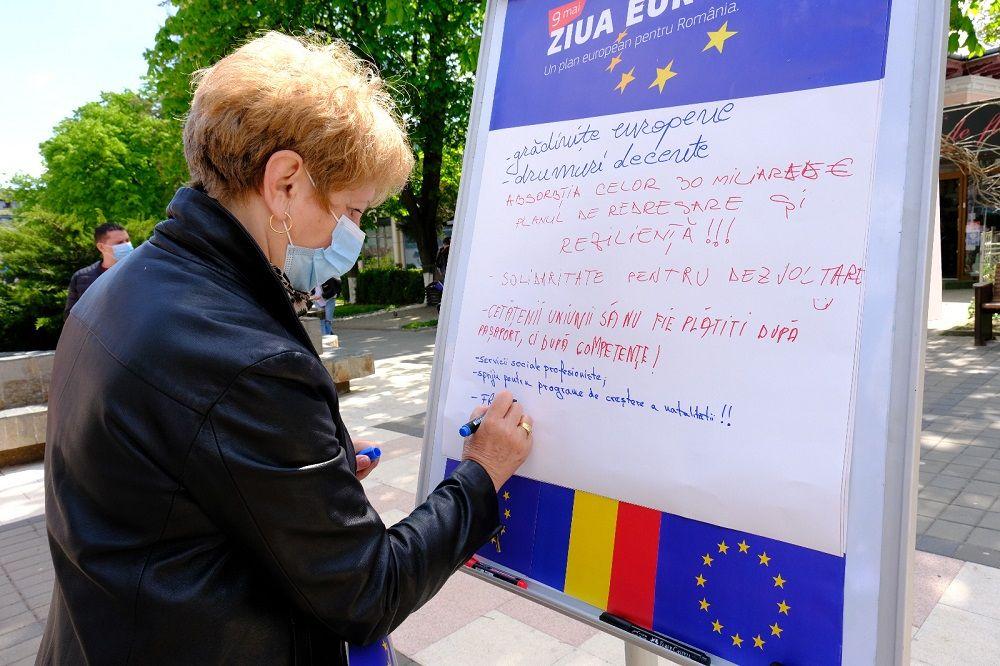 9 mai
ZIUA EUR
Un plan european pentru România.
-grădinițe europene
-drumuri decente
ABSORBȚIA CELOR 30 MILIARDE €
PLANUL DE REDRESARE ȘI
REZILIENȚĂ !!!
- SOLIDARITATE PENTRU DEZVOLTARE
-CETĂȚENII UNIUNII SĂ NU FIE PLĂTIȚI DUPĂ
PAȘAPORT, CI DUPĂ COMPETENȚE!
-servicii sociale profesioniste;
-sprijin pentru programe de creștere a natalității !!